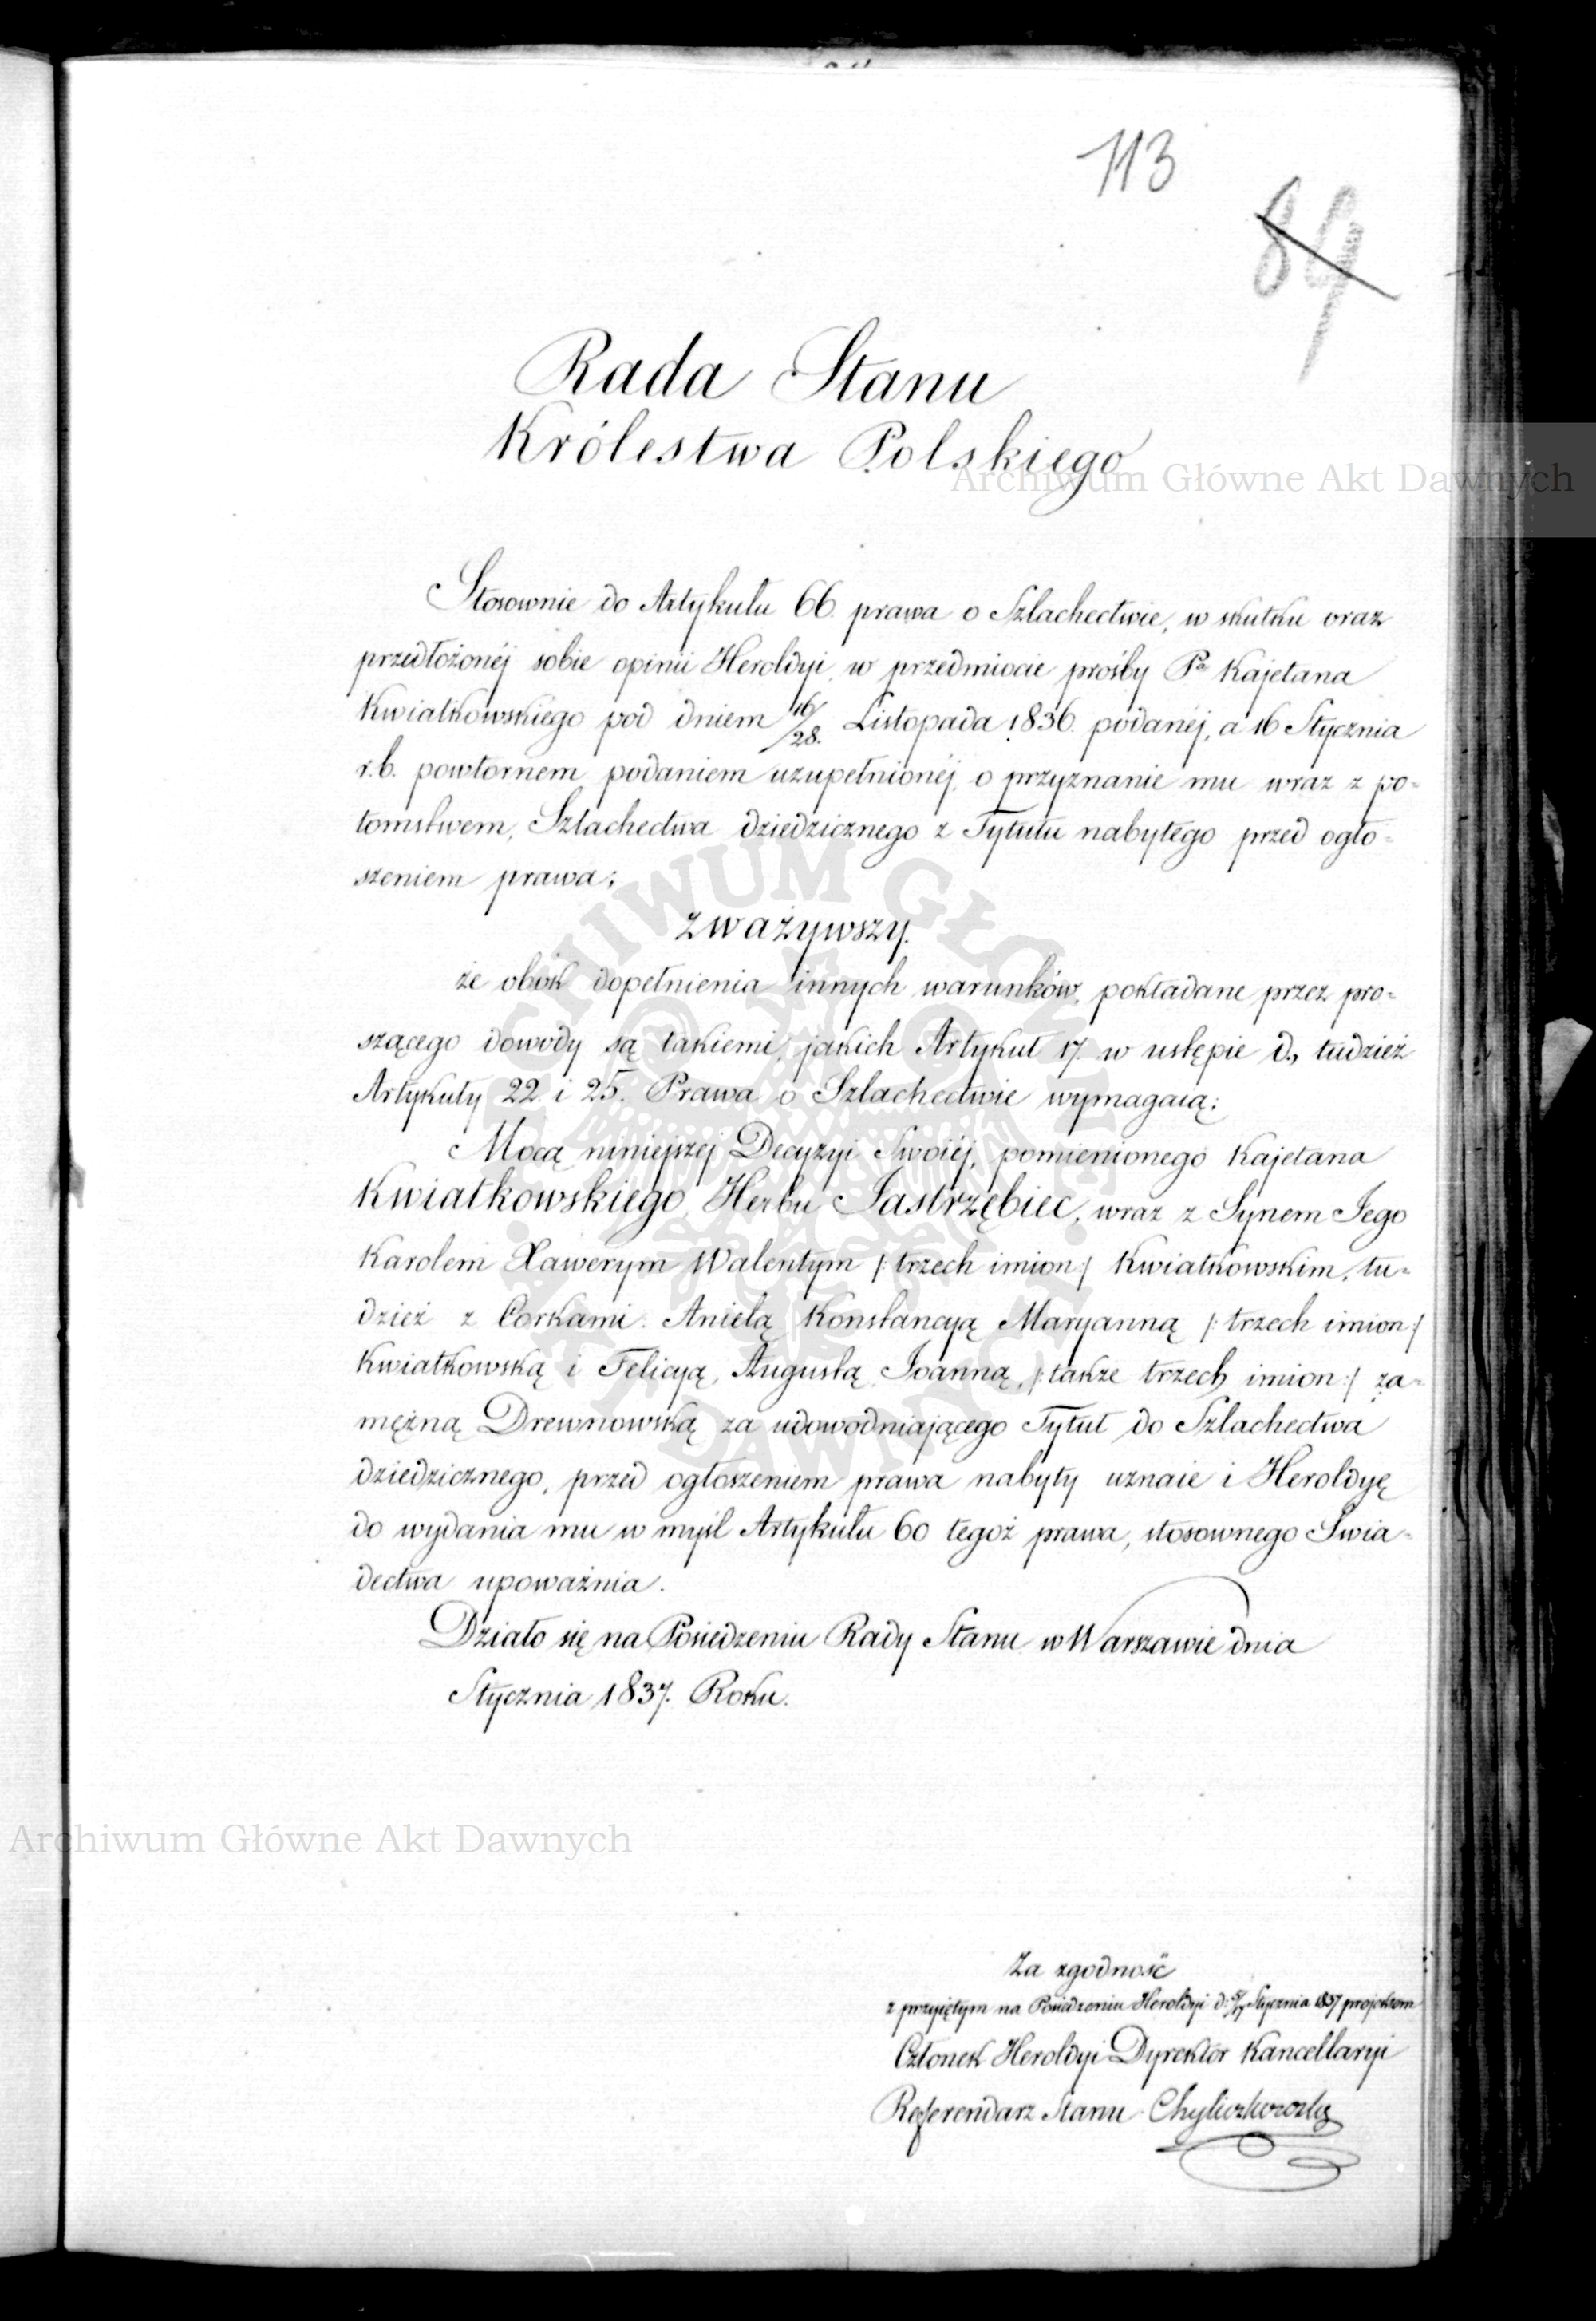 113
84
Rada Stanu
Królestwa Polskiego
Archiwum Główne Akt Dawnych
Stosownie do Artykułu 66. prawa o Szlachectwie, w skutku oraz
przedłożonéj sobie opinii Heroldyi, w przedmiocie prośby Pa Kajetana
Kwiatkowskiego pod dniem 16/28. Listopada 1836. podanéj, a 16 Stycznia
r.b. powtornem podaniem uzupełnionéj, o przyznanie mu wraz z po-
tomstwem, Szlachectwa dziedzicznego z Tytułu nabytego przed ogło-
szeniem prawa;
zważywszy.
że obok dopełnienia innych warunków, pokładane przez pro-
szącego dowody są takiemi, jakich Artykuł 17. w ustępie d., tudzież
Artykuły 22. i 25. Prawa o Szlachectwie wymagaią;
Mocą niniejszéj Decyzyi Swoiéj, pomienionego Kajetana
Kwiatkowskiego, Herbu Jastrzębiec, wraz z Synem Jego
Karolem Xawerym Walentym /: trzech imion :/ Kwiatkowskim, tu-
dzież z Corkami. Anielą Konstancyą Maryanną /: trzech imion :/
Kwiatkowską i Felicyą, Augustą, Joanną, /: także trzech imion :/ za-
mężną Drewnowską za udowodniającego Tytuł do Szlachectwa
dziedzicznego, przed ogłoszeniem prawa nabyty uznaie i Heroldyę
do wydania mu w myśl Artykułu 60 tegoż prawa, stosownego Swia-
dectwa upoważnia.
Działo się na Posiedzeniu Rady Stanu w Warszawie dnia
Stycznia 1837. Roku.
Archiwum Główne Akt Dawnych
Za zgodność
z przyiętym na Posiedzeniu Heroldyi d: Stycznia 1837 projektem
Członek Heroldyi Dyrektor Kancellaryi
Referendarz Stanu Chyliczkowski
ARCHIWUM GŁÓWNE AKT DAWNYCH